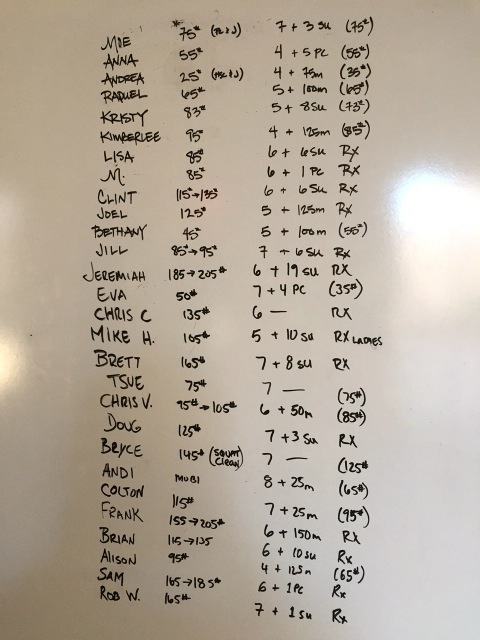 MOE 75# (PC&J) 7 + 3 SU (75#)
ANNA 55# 4 + 5 PC (55#)
ANDREA 25# 4 + 75m (35#)
RAQUEL 65# 5 + 100m (65#)
KRISTY 83# 5 + 8SU (73#)
KIMBERLEE 95# 4 + 125m (85#)
LISA 85# 6 + 6SU Rx
M. 85# 6 + 1 PC Rx
CLINT 115#→135# 6 + 6SU Rx
JOEL 125# 5 + 125m Rx
BETHANY 45# 5 + 100m (55#)
JILL 85#→95# 7 + 6SU Rx
JEREMIAH 185→205# 6 + 19 SU RX
EVA 50# 7 + 4 PC (35#)
CHRIS C 135# 6 — RX
MIKE H. 105# 5 + 10 SU RX LADIES
BRETT 165# 7 + 8 SU RX
TSUE 75# 7 — (75#)
CHRIS V. 95#→105# 6 + 50m (85#)
DOUG 125# 7 + 3 SU RX
BRYCE 145# (SQUAT CLEAN) 7 — (125#)
ANDI MOBI 8 + 25m (65#)
COLTON 115# 7 + 25m (95#)
FRANK 155→205# 6 + 150m Rx
BRIAN 115→135 6 + 10 SU Rx
ALISON 95# 4 + 125m (65#)
SAM 165→185# 6 + 1PC Rx
ROB W. 165# 7 + 1 SU Rx